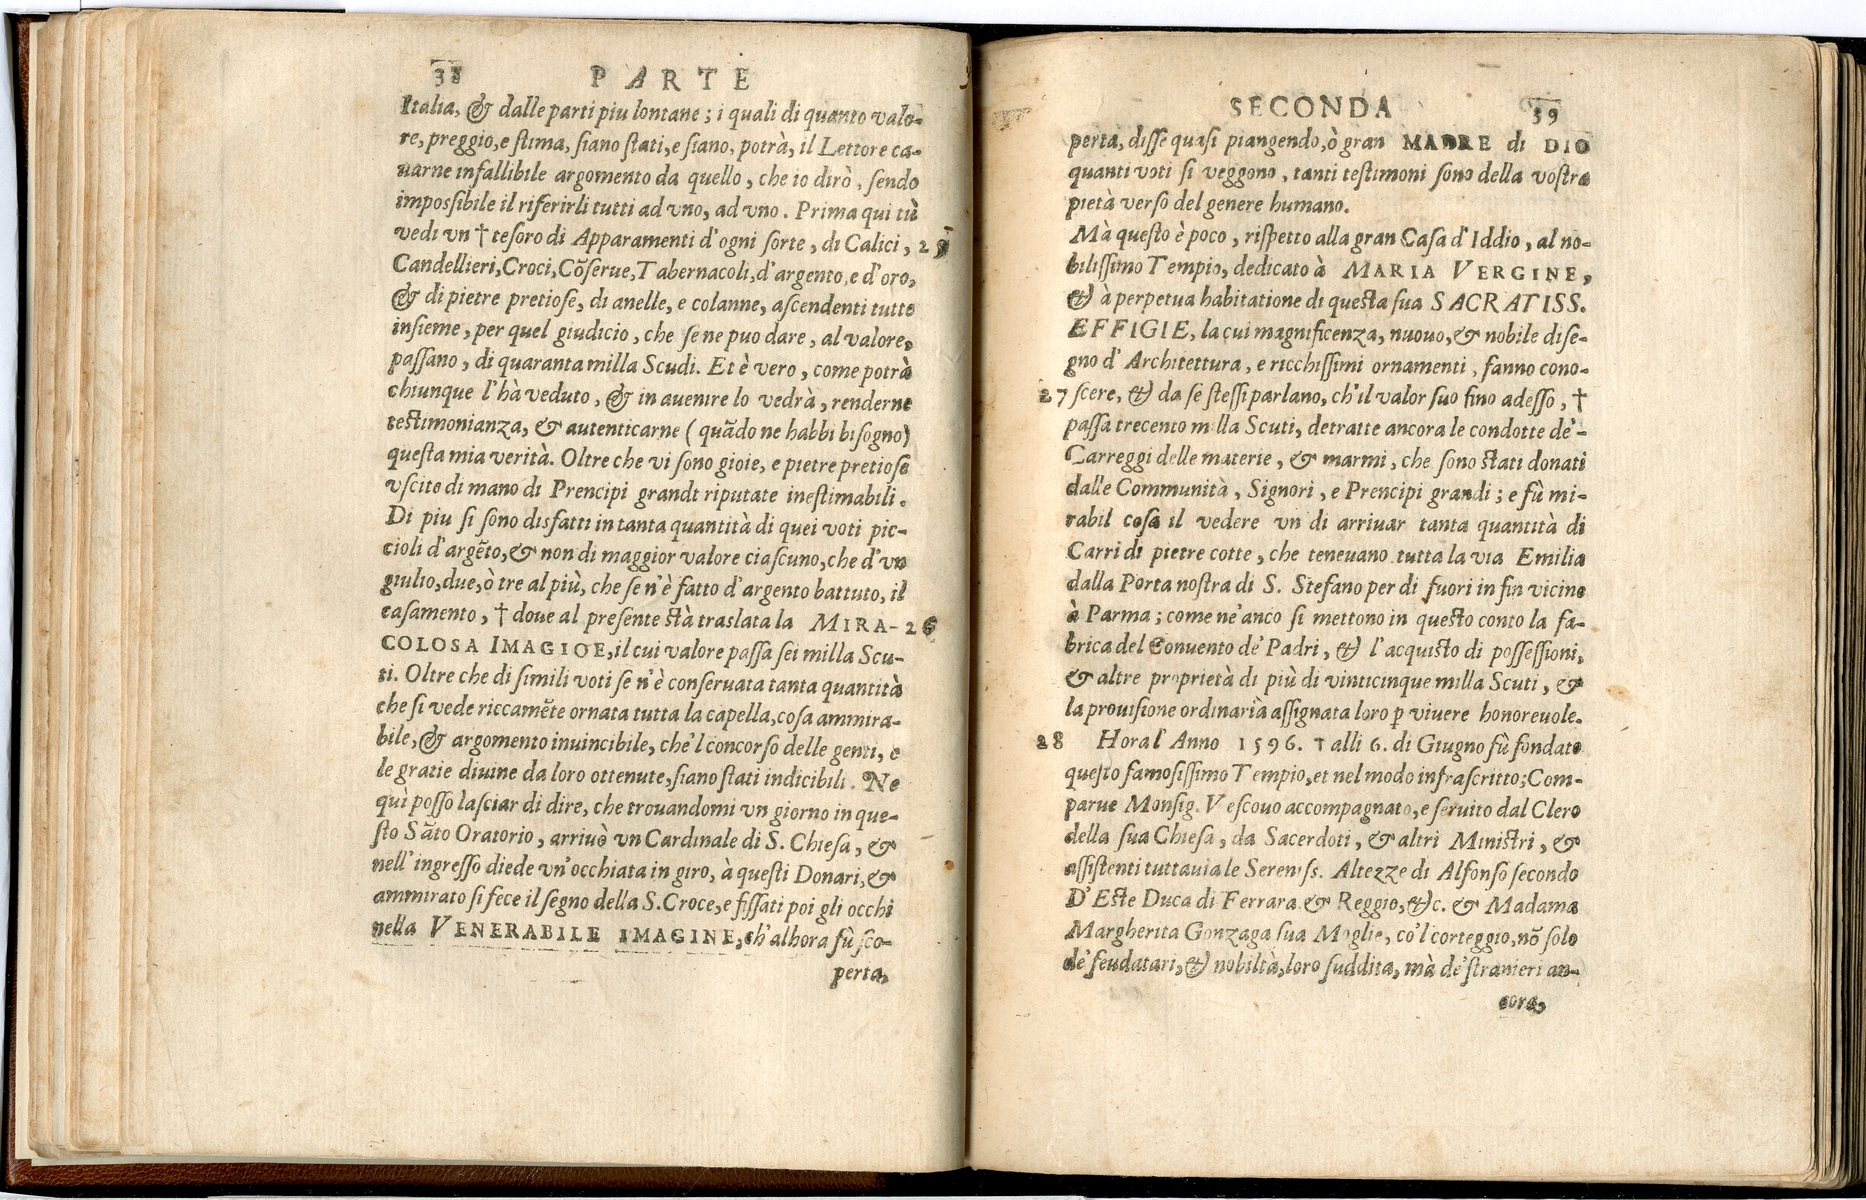 38 PARTE
Italia, & dalle parti piu lontane; i quali di quanto valo-
re, preggio, e ſtima, ſiano ſtati, e ſiano, potrà, il Lettore ca-
uarne infallibile argomento da quello, che io dirò, ſendo
impoſsibile il riferirli tutti ad vno, ad vno. Prima qui tù
vedi vn † teſoro di Apparamenti d'ogni ſorte, di Calici, 25
Candellieri, Croci, Cõſerue, Tabernacoli, d'argento, e d'oro,
& di pietre pretioſe, di anelle, e colanne, aſcendenti tutte
inſieme, per quel giudicio, che ſe ne puo dare, al valore,
paſſano, di quaranta milla Scudi. Et è vero, come potrà
chiunque l'hà veduto, & in auenire lo vedrà, renderne
teſtimonianza, & autenticarne (quãdo ne habbi biſogno)
queſta mia verità. Oltre che vi ſono gioie, e pietre pretioſe
vſcite di mano di Prencipi grandi riputate ineſtimabili.
Di piu ſi ſono disfatti in tanta quantità di quei voti pic-
cioli d'argẽto, & non di maggior valore ciaſcuno, che d'vn
giulio, due, ò tre al più, che ſe n'è fatto d'argento battuto, il
caſamento, † doue al preſente ſtà traslata la MIRA- 26
COLOSA IMAGIOE, il cui valore paſſa ſei milla Scu-
ti. Oltre che di ſimili voti ſe n'è conſeruata tanta quantità
che ſi vede riccamẽte ornata tutta la capella, coſa ammira-
bile, & argomento inuincibile, che'l concorſo delle genti, e
le gratie diuine da loro ottenute, ſiano ſtati indicibili. Ne
quì poſſo laſciar di dire, che trouandomi vn giorno in que-
ſto Sãto Oratorio, arriuò vn Cardinale di S. Chieſa, &
nell'ingreſſo diede vn'occhiata in giro, à queſti Donari, &
ammirato ſi fece il ſegno della S. Croce, e fiſſati poi gli occhi
nella VENERABILE IMAGINE, ch'alhora fù ſco-
perta,
SECONDA 39
perta, diſſe quaſi piangendo, ò gran MADRE di DIO
quanti voti ſi veggono, tanti teſtimoni ſono della voſtra
pietà verſo del genere humano.
Mà queſto è poco, riſpetto alla gran Caſa d'Iddio, al no-
biliſſimo Tempio, dedicato à MARIA VERGINE,
& à perpetua habitatione di queſta ſua SACRATISS.
EFFIGIE, la cui magnificenza, nuouo, & nobile diſe-
gno d'Architettura, e ricchiſſimi ornamenti, fanno cono-
27 ſcere, & da ſe ſteſſi parlano, ch'il valor ſuo fino adeſſo, †
paſſa trecento milla Scuti, detratte ancora le condotte de'-
Carreggi delle materie, & marmi, che ſono ſtati donati
dalle Communità, Signori, e Prencipi grandi; e fù mi-
rabil coſa il vedere vn di arriuar tanta quantità di
Carri di pietre cotte, che teneuano tutta la via Emilia
dalla Porta noſtra di S. Stefano per di fuori in fin vicino
à Parma; come ne'anco ſi mettono in queſto conto la fa-
brica del Conuento de' Padri, & l'acquiſto di poſſeſſioni,
& altre proprietà di più di vinticinque milla Scuti, &
la prouiſione ordinaria aſſignata loro ꝑ viuere honoreuole.
28 Hora l'Anno 1596. † alli 6. di Giugno fù fondato
queſto famoſiſſimo Tempio, et nel modo infraſcritto; Com-
parue Monſig. Veſcouo accompagnato, e ſeruito dal Clero
della ſua Chieſa, da Sacerdoti, & altri Miniſtri, &
aſſiſtenti tuttauia le Sereniſs. Altezze di Alfonſo ſecondo
D'Eſte Duca di Ferrara & Reggio, &c. & Madama
Margherita Gonzaga ſua Moglie, co'l corteggio, nõ ſolo
de' feudatari, & nobiltà, loro ſuddita, mà de' ſtranieri an-
cora,